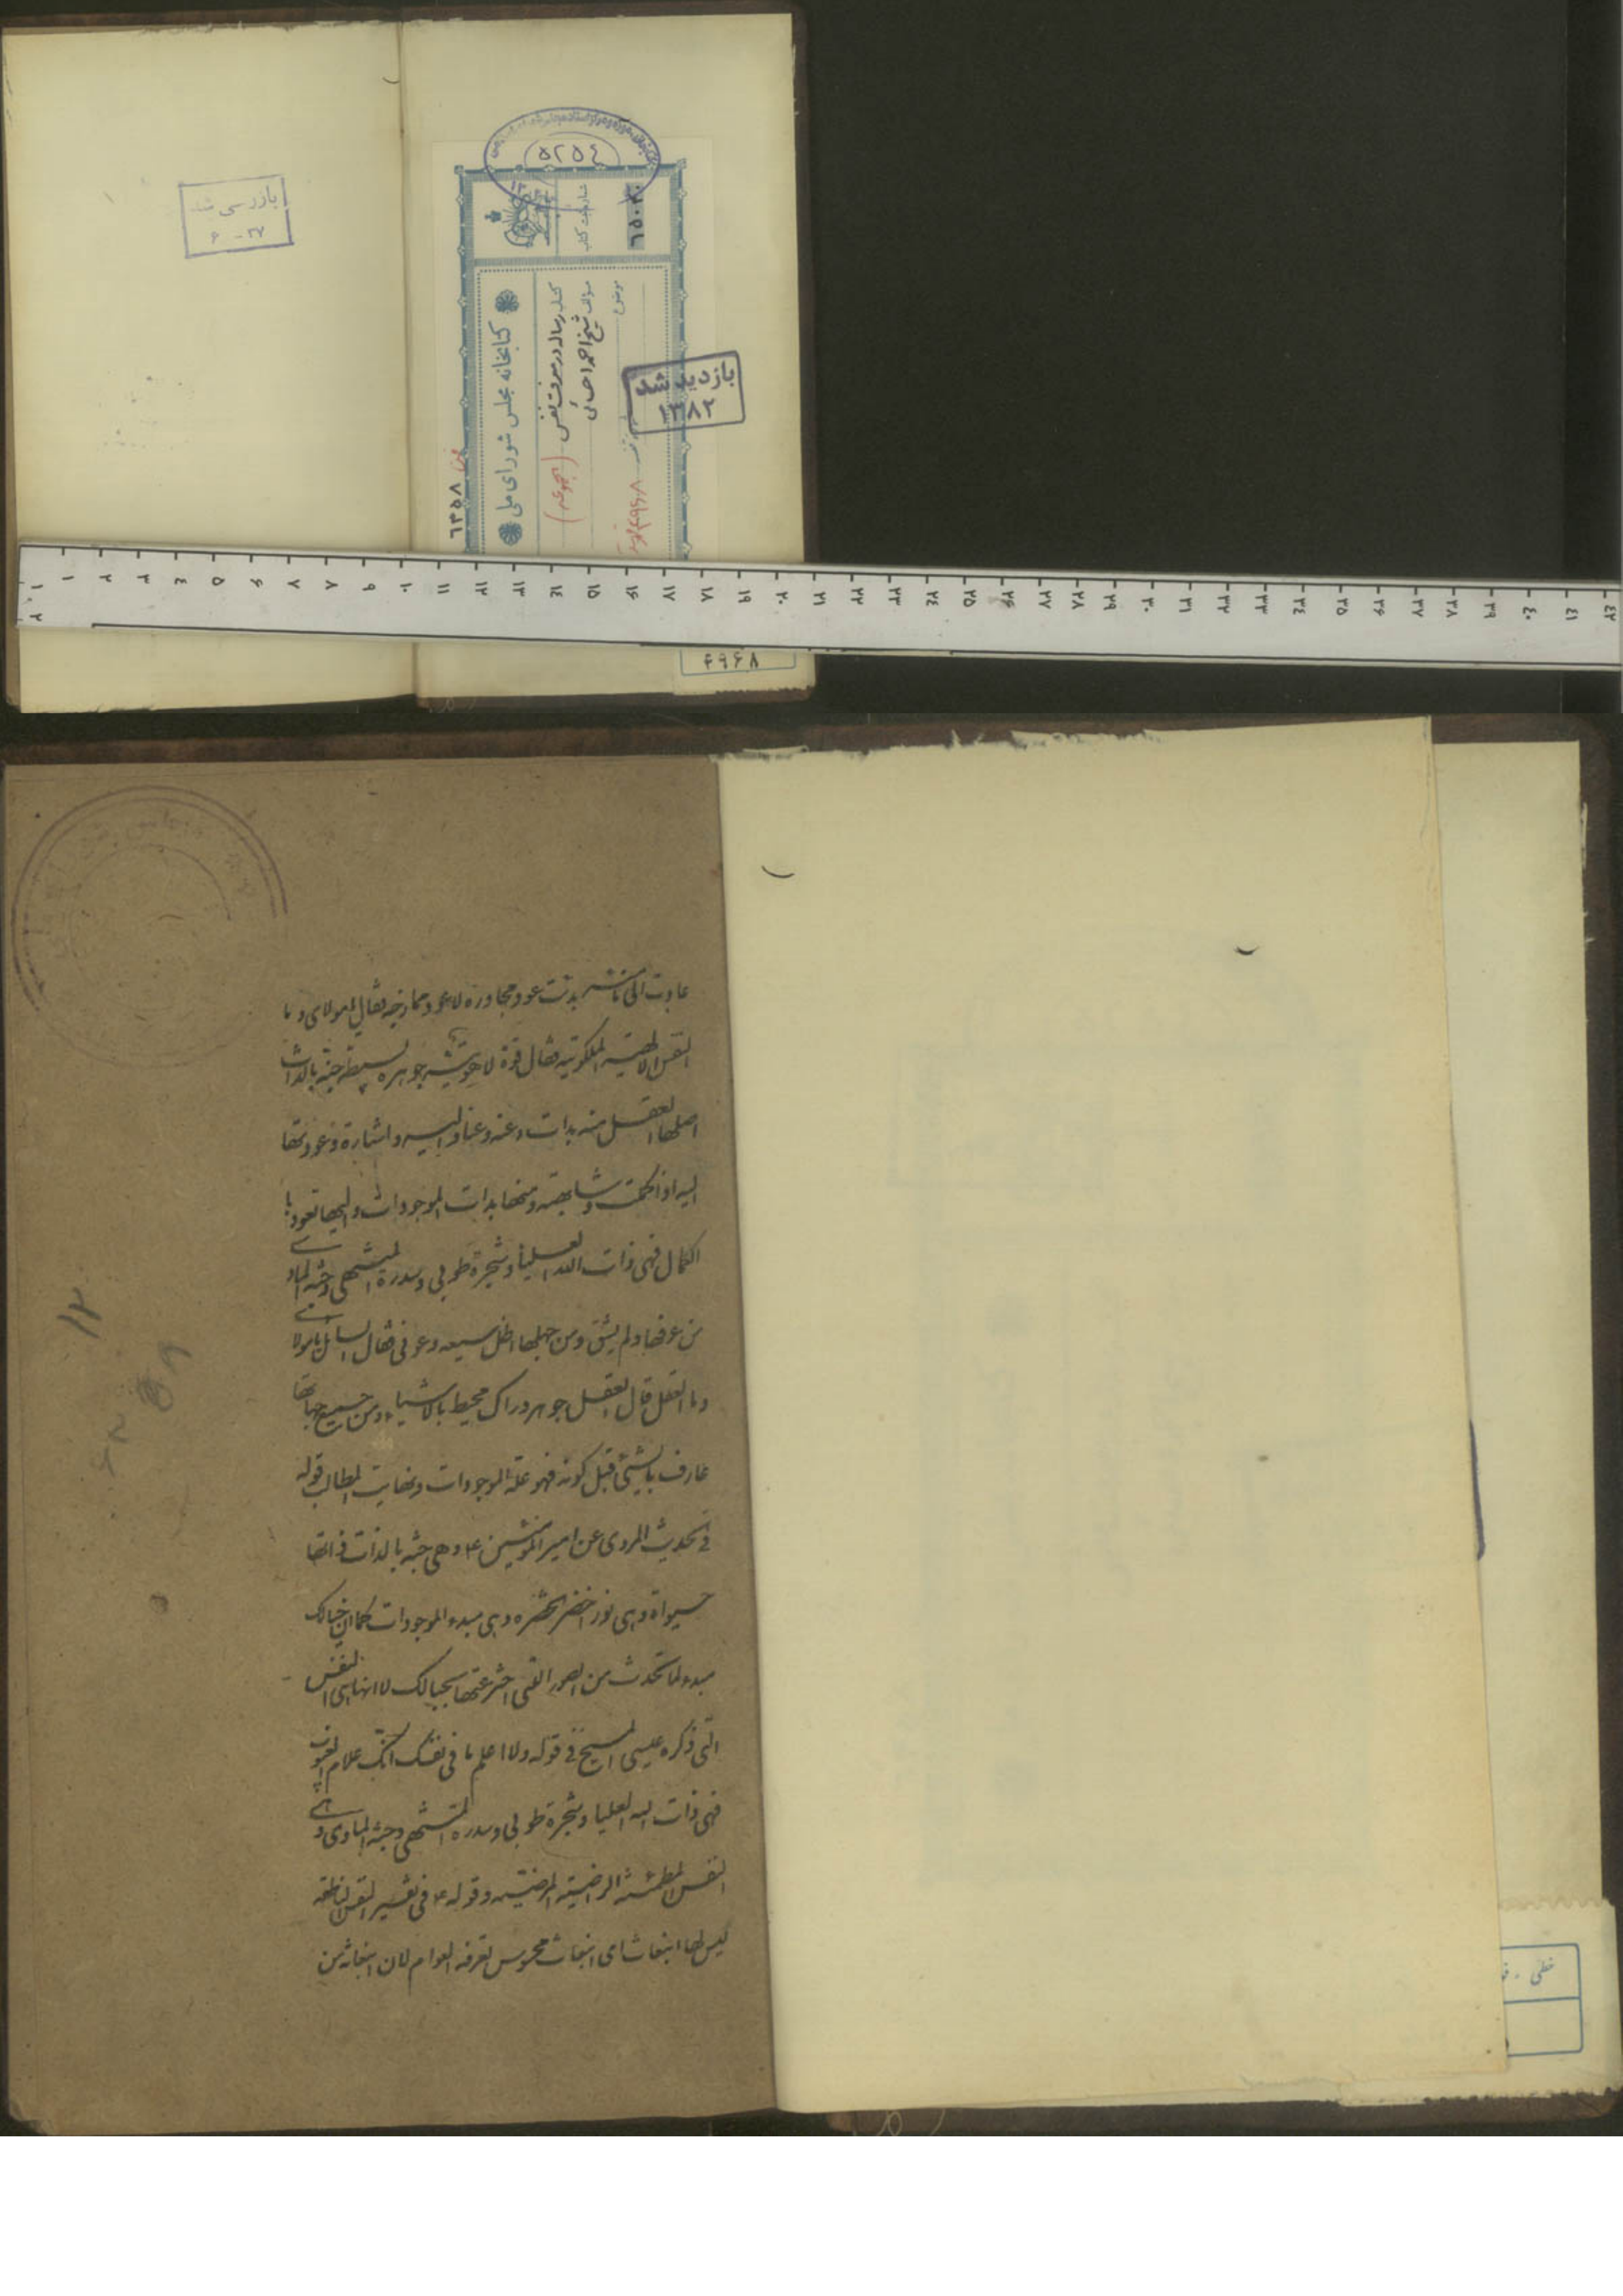 بازرسی شد
۲۷ - ۶
۵۲۵٤
شماره ثبت کتاب
کتابخانه مجلس شورای ملی
کتاب رساله در معرفت نفس (مجموعه)
مؤلف شیخ احمد احسائی
موضوع
بازدید شد
۱۳۸۲
۶۳۵۸
۴۹۶۸
عادت الی ما منه بدئت عود مجاورة لا عود ممازجة فقال یا مولای و ما
النفس الالهیة الملکوتیة فقال قوة لاهوتیة جوهره بسیطة حیة بالذات
اصلها العقل منه بدات و عنه و عنا و الیه و اشارة و عودتها
الیه اذا کملت و شابهته و منها بدات الموجودات و الیها تعود با
الکمال فهی ذات الله العلیا و شجرة طوبی و سدرة المنتهی و جنة الماوی
من عرفها و لم یشق و من جهلها ضل سعیه و غوی فقال السائل یا مولای
و ما العقل قال العقل جوهر دراک محیط بالاشیاء من جمیع جهاتها
عارف بالشیئ قبل کونه فهو علة الموجودات و نهایت المطالب قوله
فی الحدیث المروی عن امیر المؤمنین ع و هی حیة بالذات ذاتها
حیواة و هی نور اخضر و هی مبدء الموجودات کما ان خیالک
مبدء لما تحدث من الصور التی اخترعتها بخیالک لا انها هی النفس
التی ذکره عیسی المسیح فی قوله و لا اعلم ما فی نفسک انک علام الغیوب
فهی ذات الله العلیا و شجرة طوبی و سدرة المنتهی و جنة الماوی و هی
النفس المطمئنة الراضیة المرضیة و قوله ع فی تفسیر النفس الناطقة
لیس لها انبعاث ای انبعاث محسوس تعرفه العوام لان انبعاثه من
خطی